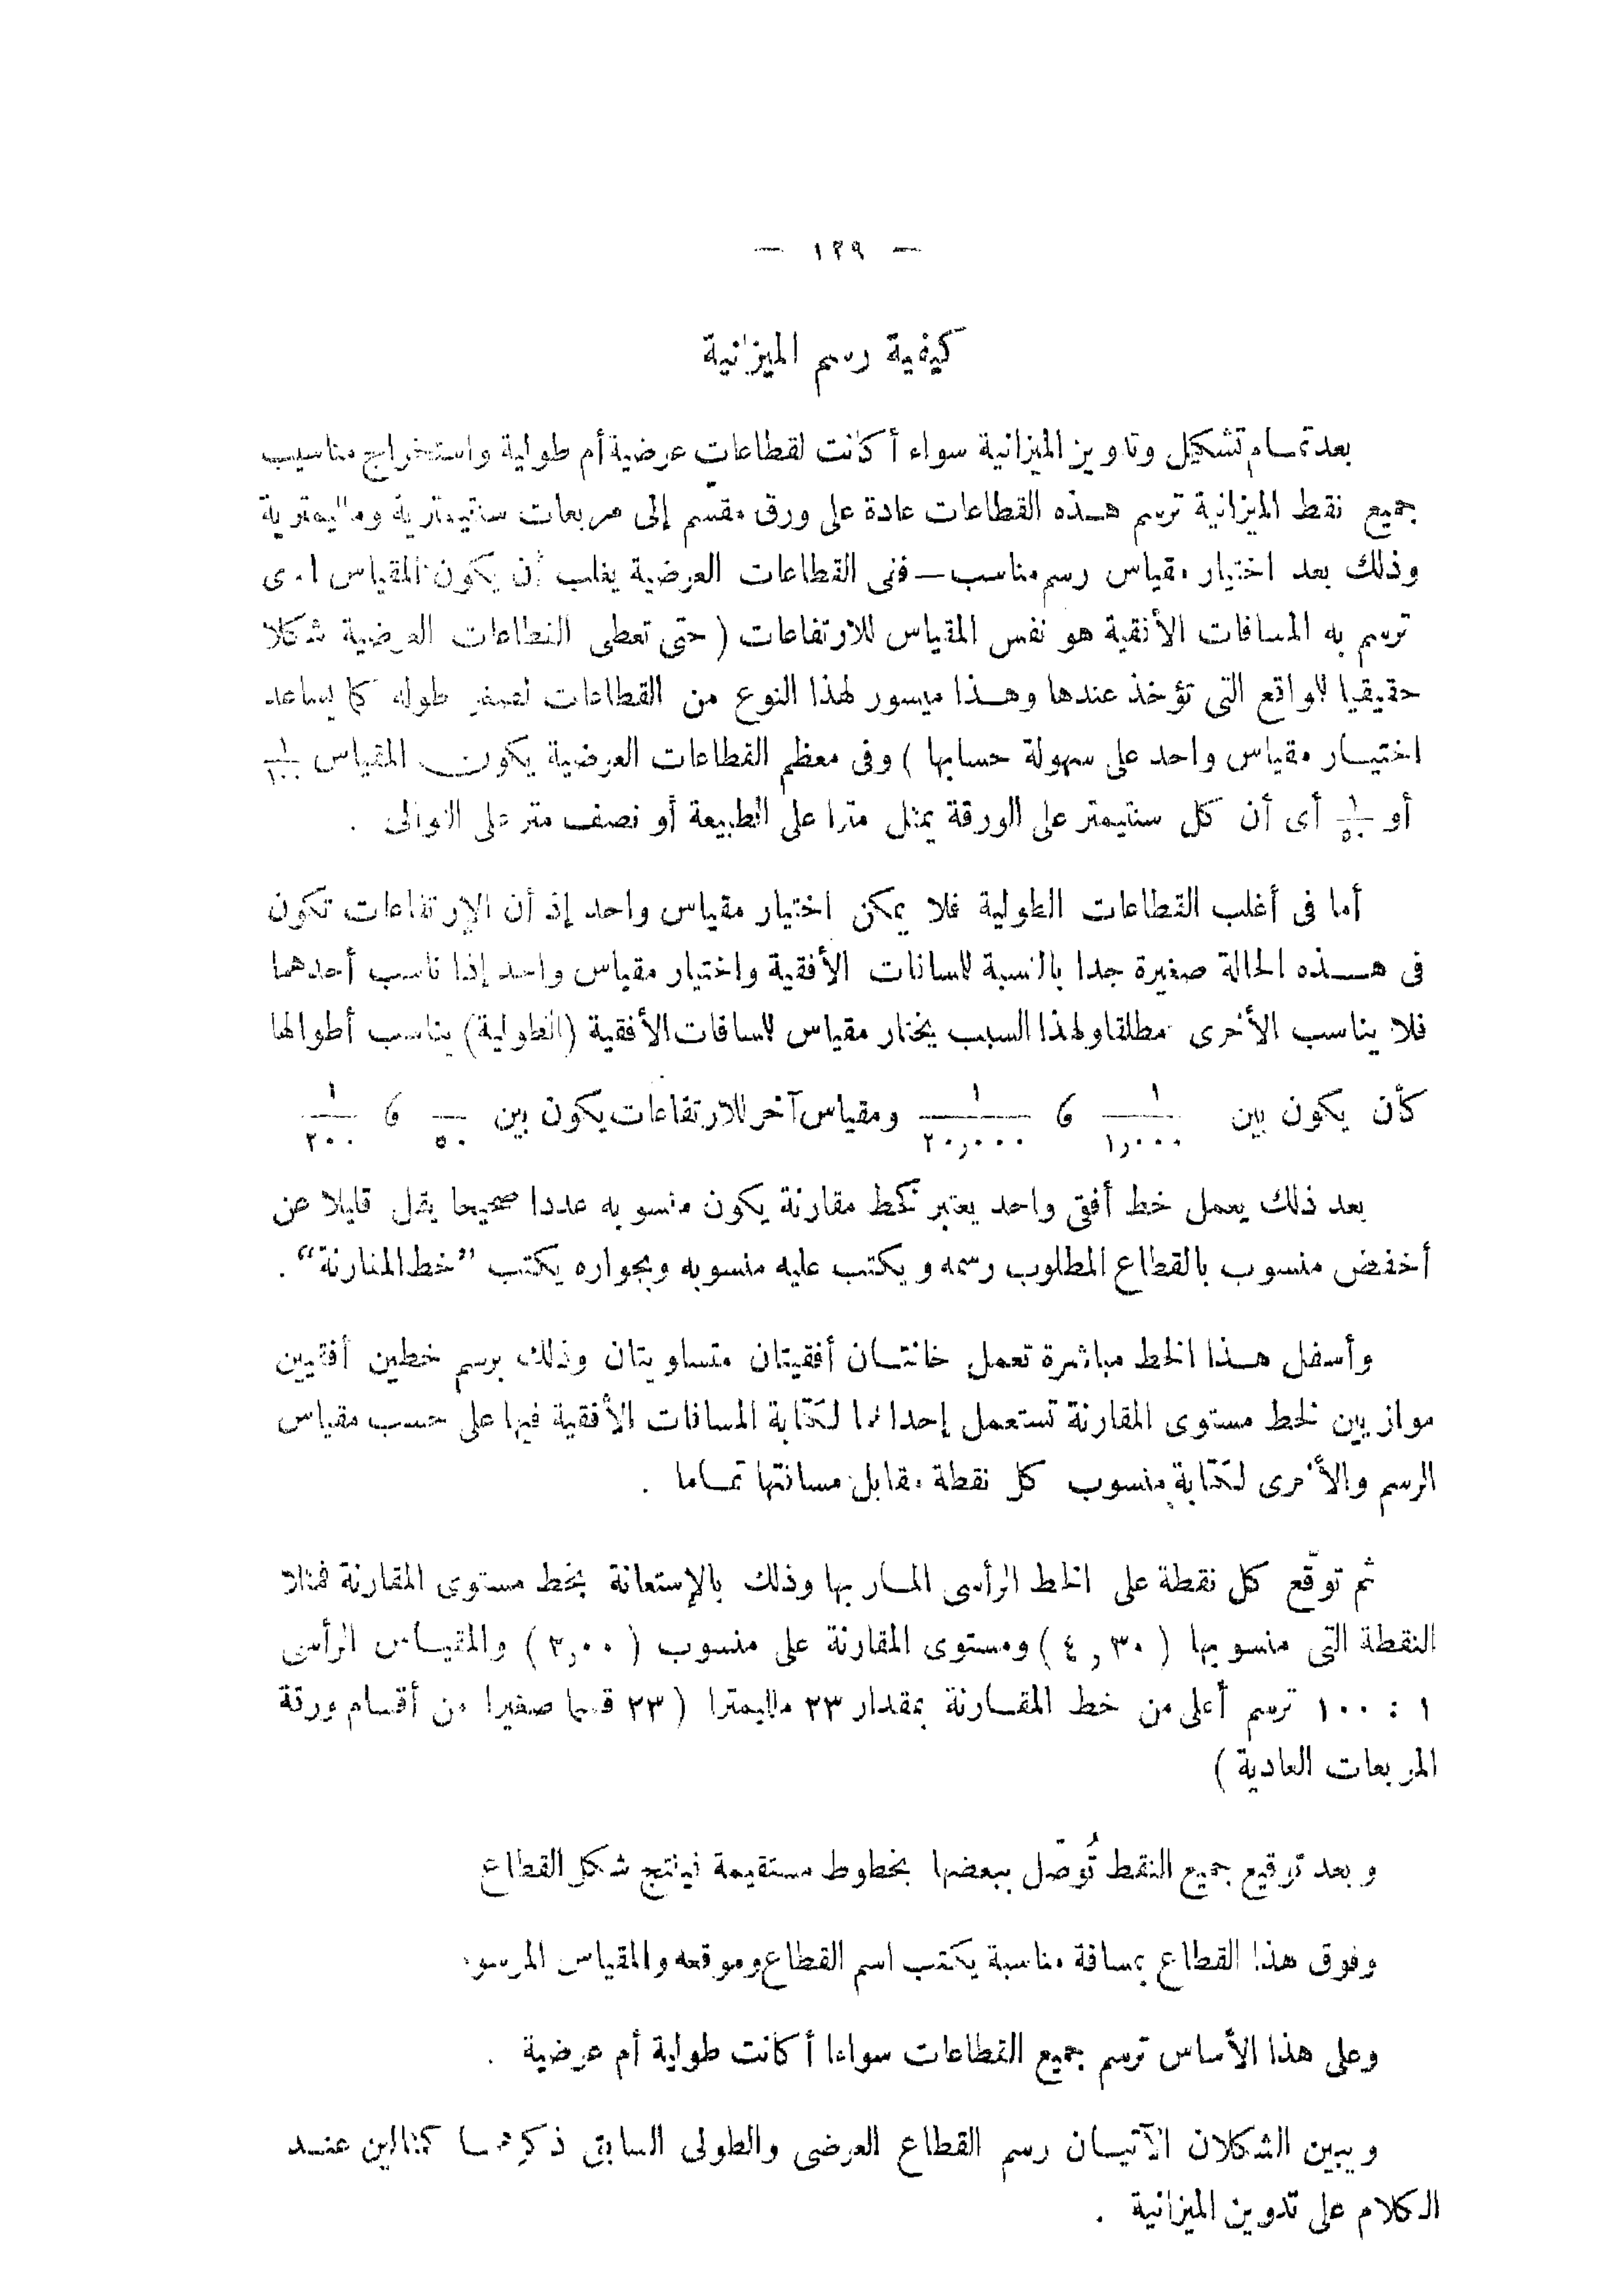 — ١٢٩ —
كيفية رسم الميزانية
بعد تمام تشكيل وتدوين الميزانية سواء أكانت لقطاعات عرضية أم طولية واستخراج مناسيب
جميع نقط الميزانية ترسم هذه القطاعات عادة على ورق مقسّم إلى مربعات سنتيمترية ومليمترية
وذلك بعد اختيار مقياس رسم مناسب — ففى القطاعات العرضية يغلب أن يكون المقياس الذى
ترسم به المسافات الأفقية هو نفس المقياس للارتفاعات ( حتى تعطى القطاعات العرضية شكلا
حقيقيا للواقع التى تؤخذ عندها وهذا ميسور لهذا النوع من القطاعات لصغر طوله كما يساعد
اختيار مقياس واحد على سهولة حسابها ) وفى معظم القطاعات العرضية يكون المقياس ١/١٠٠
أو ١/٥٠ أى أن كل سنتيمتر على الورقة يمثل مترا على الطبيعة أو نصف متر على التوالى .
أما فى أغلب القطاعات الطولية فلا يمكن اختيار مقياس واحد إذ أن الإرتفاعات تكون
فى هذه الحالة صغيرة جدا بالنسبة للسافات الأفقية واختيار مقياس واحد إذا ناسب أحدهما
فلا يناسب الأخرى مطلقا ولهذا السبب يختار مقياس للسافات الأفقية (الطولية) يناسب أطوالها
كأن يكون بين ١/١,٠٠٠ و ١/٢٠,٠٠٠ ومقياس آخر للارتفاعات يكون بين —/٥٠ و ١/٢٠٠
بعد ذلك يعمل خط أفقى واحد يعتبر كخط مقارنة يكون منسوبه عددا صحيحا يقل قليلا عن
أخفض منسوب بالقطاع المطلوب رسمه ويكتب عليه منسوبه وبجواره يكتب ”خط المقارنة“ .
وأسفل هذا الخط مباشرة تعمل خانتان أفقيتان متساويتان وذلك برسم خطين أفقيين
موازيين لخط مستوى المقارنة تستعمل إحداهما لكتابة المسافات الأفقية فيها على حسب مقياس
الرسم والأخرى لكتابة منسوب كل نقطة مقابل مسافتها تماما .
ثم توقّع كل نقطة على الخط الرأسى المار بها وذلك بالإستعانة بخط مستوى المقارنة فمثلا
النقطة التى منسوبها ( ٤,٣٠ ) ومستوى المقارنة على منسوب ( ٢,٠٠ ) والمقياس الرأسى
١ : ١٠٠ ترسم أعلى من خط المقارنة بمقدار ٢٣ ملليمترا ( ٢٣ قسما صغيرا من أقسام ورقة
المربعات العادية )
وبعد توقيع جميع النقط تُوصّل ببعضها بخطوط مستقيمة فينتج شكل القطاع
وفوق هذا القطاع بمسافة مناسبة يكتب اسم القطاع وموقعه والمقياس
وعلى هذا الأساس ترسم جميع القطاعات سواءا أكانت طولية أم عرضية .
ويبين الشكلان الآتيان رسم القطاع العرضى والطولى السابق ذكرهما كمثالين عند
الكلام على تدوين الميزانية .